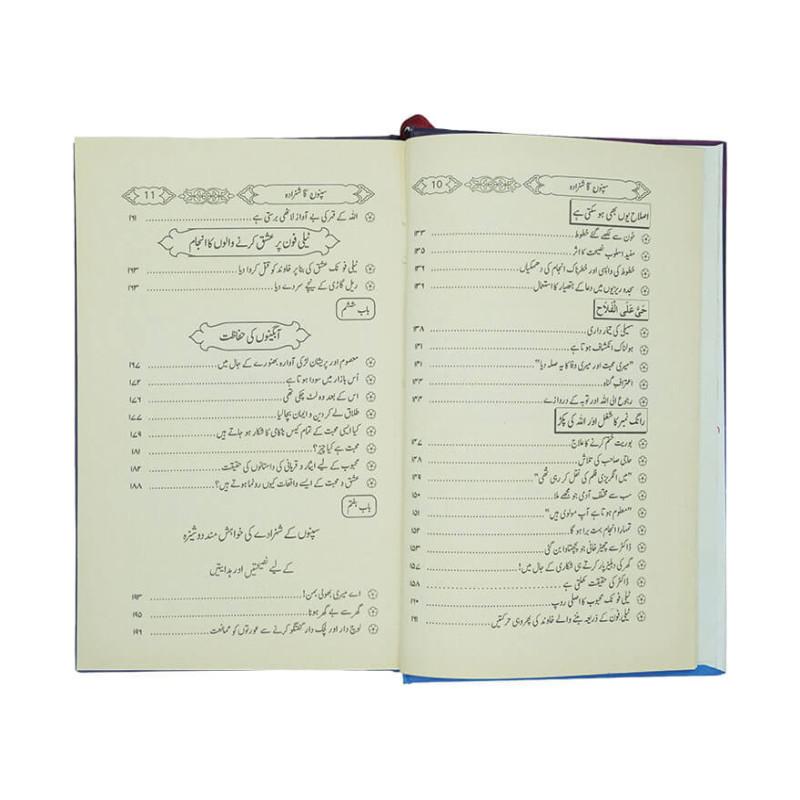 10
سپنوں کا شہزادہ
اصلاح یوں بھی ہو سکتی ہے
خون سے لکھے گئے خطوط ۱۳۳
مفید اسلوبِ نصیحت کا اثر ۱۳۵
خطوط کی واپسی اور خطرناک انجام کی دھمکیاں ۱۳۹
سجدہ ریزیوں میں دعا کے ہتھیار کا استعمال ۱۳۹
حَیَّ عَلَی الْفَلَاح
سہیلی کی تیمار داری ۱۳۸
ہولناک انکشاف ہوتا ہے ۱۴۱
"میری محبت اور میری وفا کا یہ صلہ دیا" ۱۴۱
اعترافِ گناہ ۱۴۳
رجوع الی اللہ اور توبہ کے دروازے ۱۴۳
رانگ نمبر کا شغل اور اللہ کی پکڑ
بوریت ختم کرنے کا علاج ۱۴۷
حاجی صاحب کی تلاش ۱۴۸
"میں انگریزی فلم کی نقل کر رہی تھی" ۱۴۹
سب سے مختلف آدمی جو مجھے ملا ۱۵۰
"معلوم ہوتا ہے آپ مولوی ہیں" ۱۵۱
تمہارا انجام بہت برا ہو گا ۱۵۲
ڈاکٹر سے چھیڑ خانی جو پچھتاوا بن گئی ۱۵۳
گھر کی دہلیز پار کرتے ہی شکاری کے جال میں! ۱۵۷
ڈاکٹر کی حقیقت کھلتی ہے ۱۵۸
ٹیلی فونک محبوب کا اصلی روپ ۱۶۰
ٹیلی فون کے ذریعہ بننے والے خاوند کی پھر وہی حرکتیں ۱۶۱
11
سپنوں کا شہزادہ
اللہ کے قہر کی بے آواز لاٹھی برستی ہے ۱۶۱
ٹیلی فون پر عشق کرنے والوں کا انجام
ٹیلی فونک عشق کی بنا پر خاوند کو قتل کروا دیا ۱۶۳
ریل گاڑی کے نیچے سر دے دیا ۱۶۳
باب ششم
آبگینوں کی حفاظت
معصوم اور پریشان لڑکی آوارہ بھنورے کے جال میں ۱۶۷
اُس بازار میں سودا ہوتا ہے ۱۷۲
اس کے بعد وہ لٹ چکی تھی ۱۷۶
طلاق لے کر دین و ایمان بچا لیا ۱۷۷
کیا ایسی محبت کے تمام کیس ناکامی کا شکار ہو جاتے ہیں ۱۷۹
محبت ہے کیا چیز؟ ۱۸۱
محبوب کے لیے ایثار و قربانی کی داستانوں کی حقیقت ۱۸۲
عشق و محبت کے ایسے واقعات کیوں رونما ہوتے ہیں؟ ۱۸۸
باب ہفتم
سپنوں کے شہزادے کی خواہش مند دوشیزہ
کے لیے نصیحتیں اور ہدایتیں
اے میری بھولی بہن! ۱۹۳
گھر سے بے گھر ہونا ۱۹۵
لوچ دار اور لچک دار گفتگو کرنے سے عورتوں کو ممانعت ۱۹۹